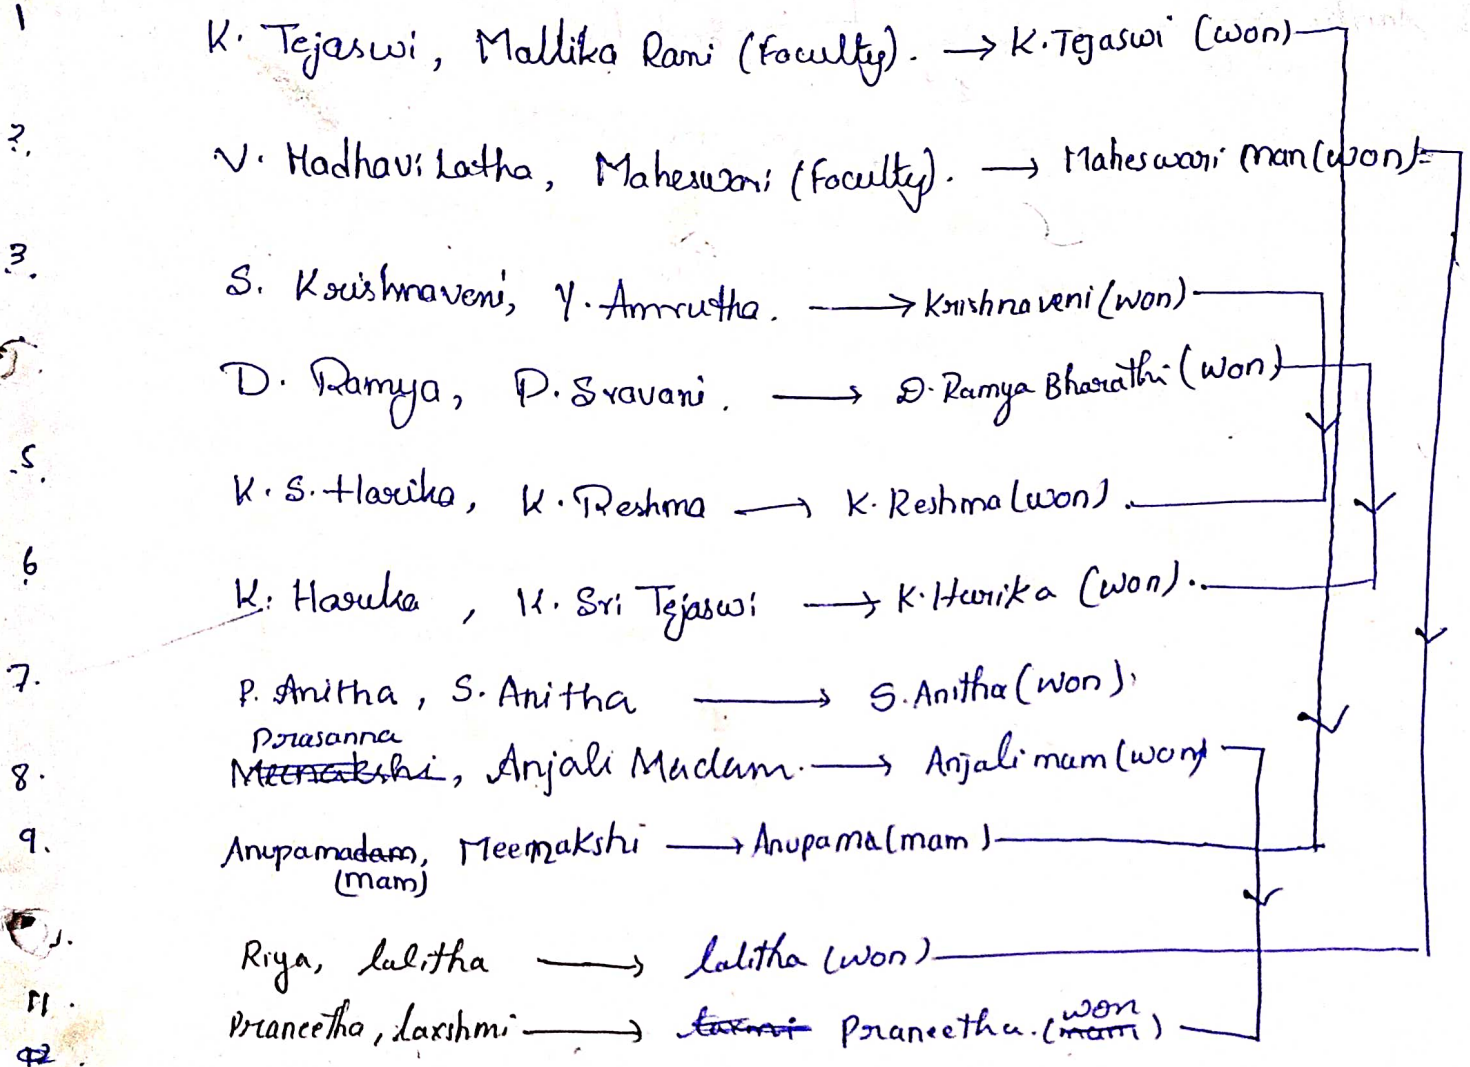 1 K. Tejaswi, Mallika Rani (Faculty). → K.Tejaswi (won)
2. V. Madhavi Latha, Maheswari (Faculty). → Maheswari mam (won)
3. S. Krishnaveni, Y. Amrutha. → Krishnaveni (won)
D. Ramya, P. Sravani. → D. Ramya Bharathi (won)
5. K. S. Harika, K. Reshma → K. Reshma (won).
6 K. Harika, K. Sri Tejaswi → K. Harika (won).
7. P. Anitha, S. Anitha → S. Anitha (won).
Prasanna
8. Meenakshi, Anjali Madam. → Anjali mam (won)
9. Anupamadam, Meenakshi → Anupama (mam)
(mam)
Riya, lalitha → lalitha (won)
won
11. Praneetha, laxshmi → laxmi Praneetha. (mam)
12.